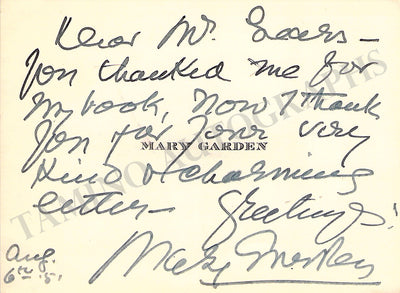 Dear Mr. Sears -
you thanked me for
my book, now I thank
you for your very
MARY GARDEN
kind & charming
letter - Greetings!
Aug.
6th '51
Mary Garden
TAMINO AUTOGRAPHS